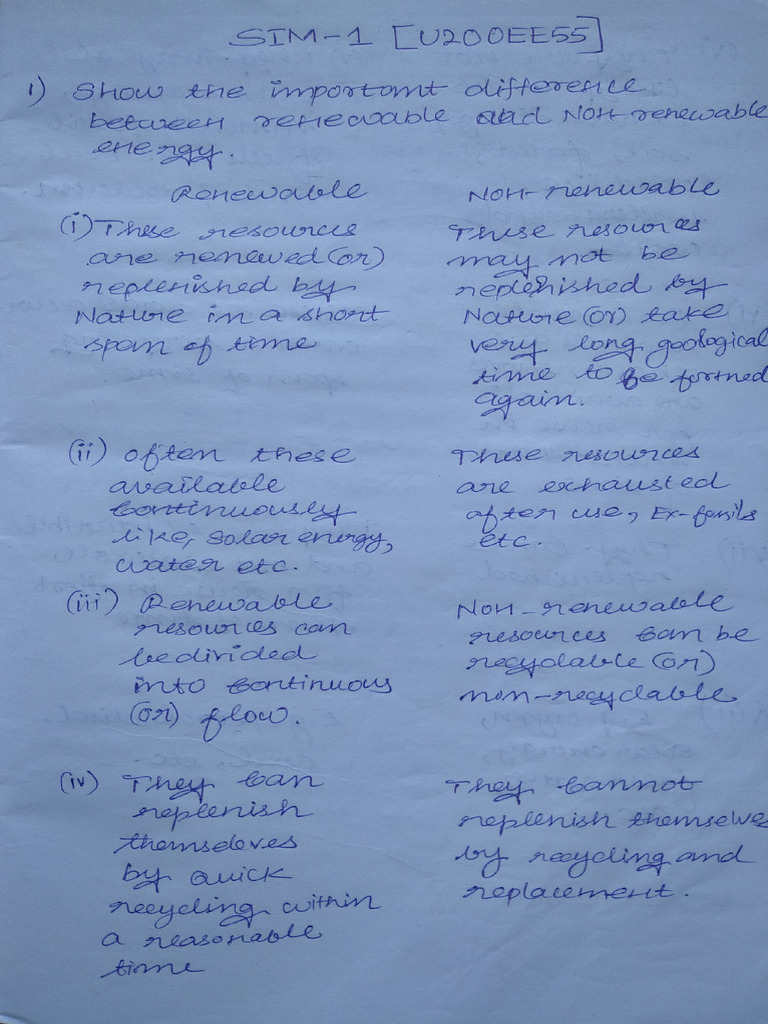 SIM-1 [U20OEE55]
1) Show the important difference
between renewable and Non-renewable
energy.
Renewable
Non-renewable
(i) These resources
are renewed (or)
replenished by
Nature in a short
span of time
These resources
may not be
replenished by
Nature (or) take
very long goological
time to be formed
again.
(ii) often these
available
continuously
like, solar energy,
water etc.
These resources
are exhausted
after use, Ex-fossils
etc.
(iii) Renewable
resources can
be divided
into continuous
(or) flow.
Non-renewable
resources can be
recyclable (or)
non-recyclable
(iv) They can
replenish
themselves
by quick
recycling within
a reasonable
time
They cannot
replenish themselves
by recycling and
replacement.